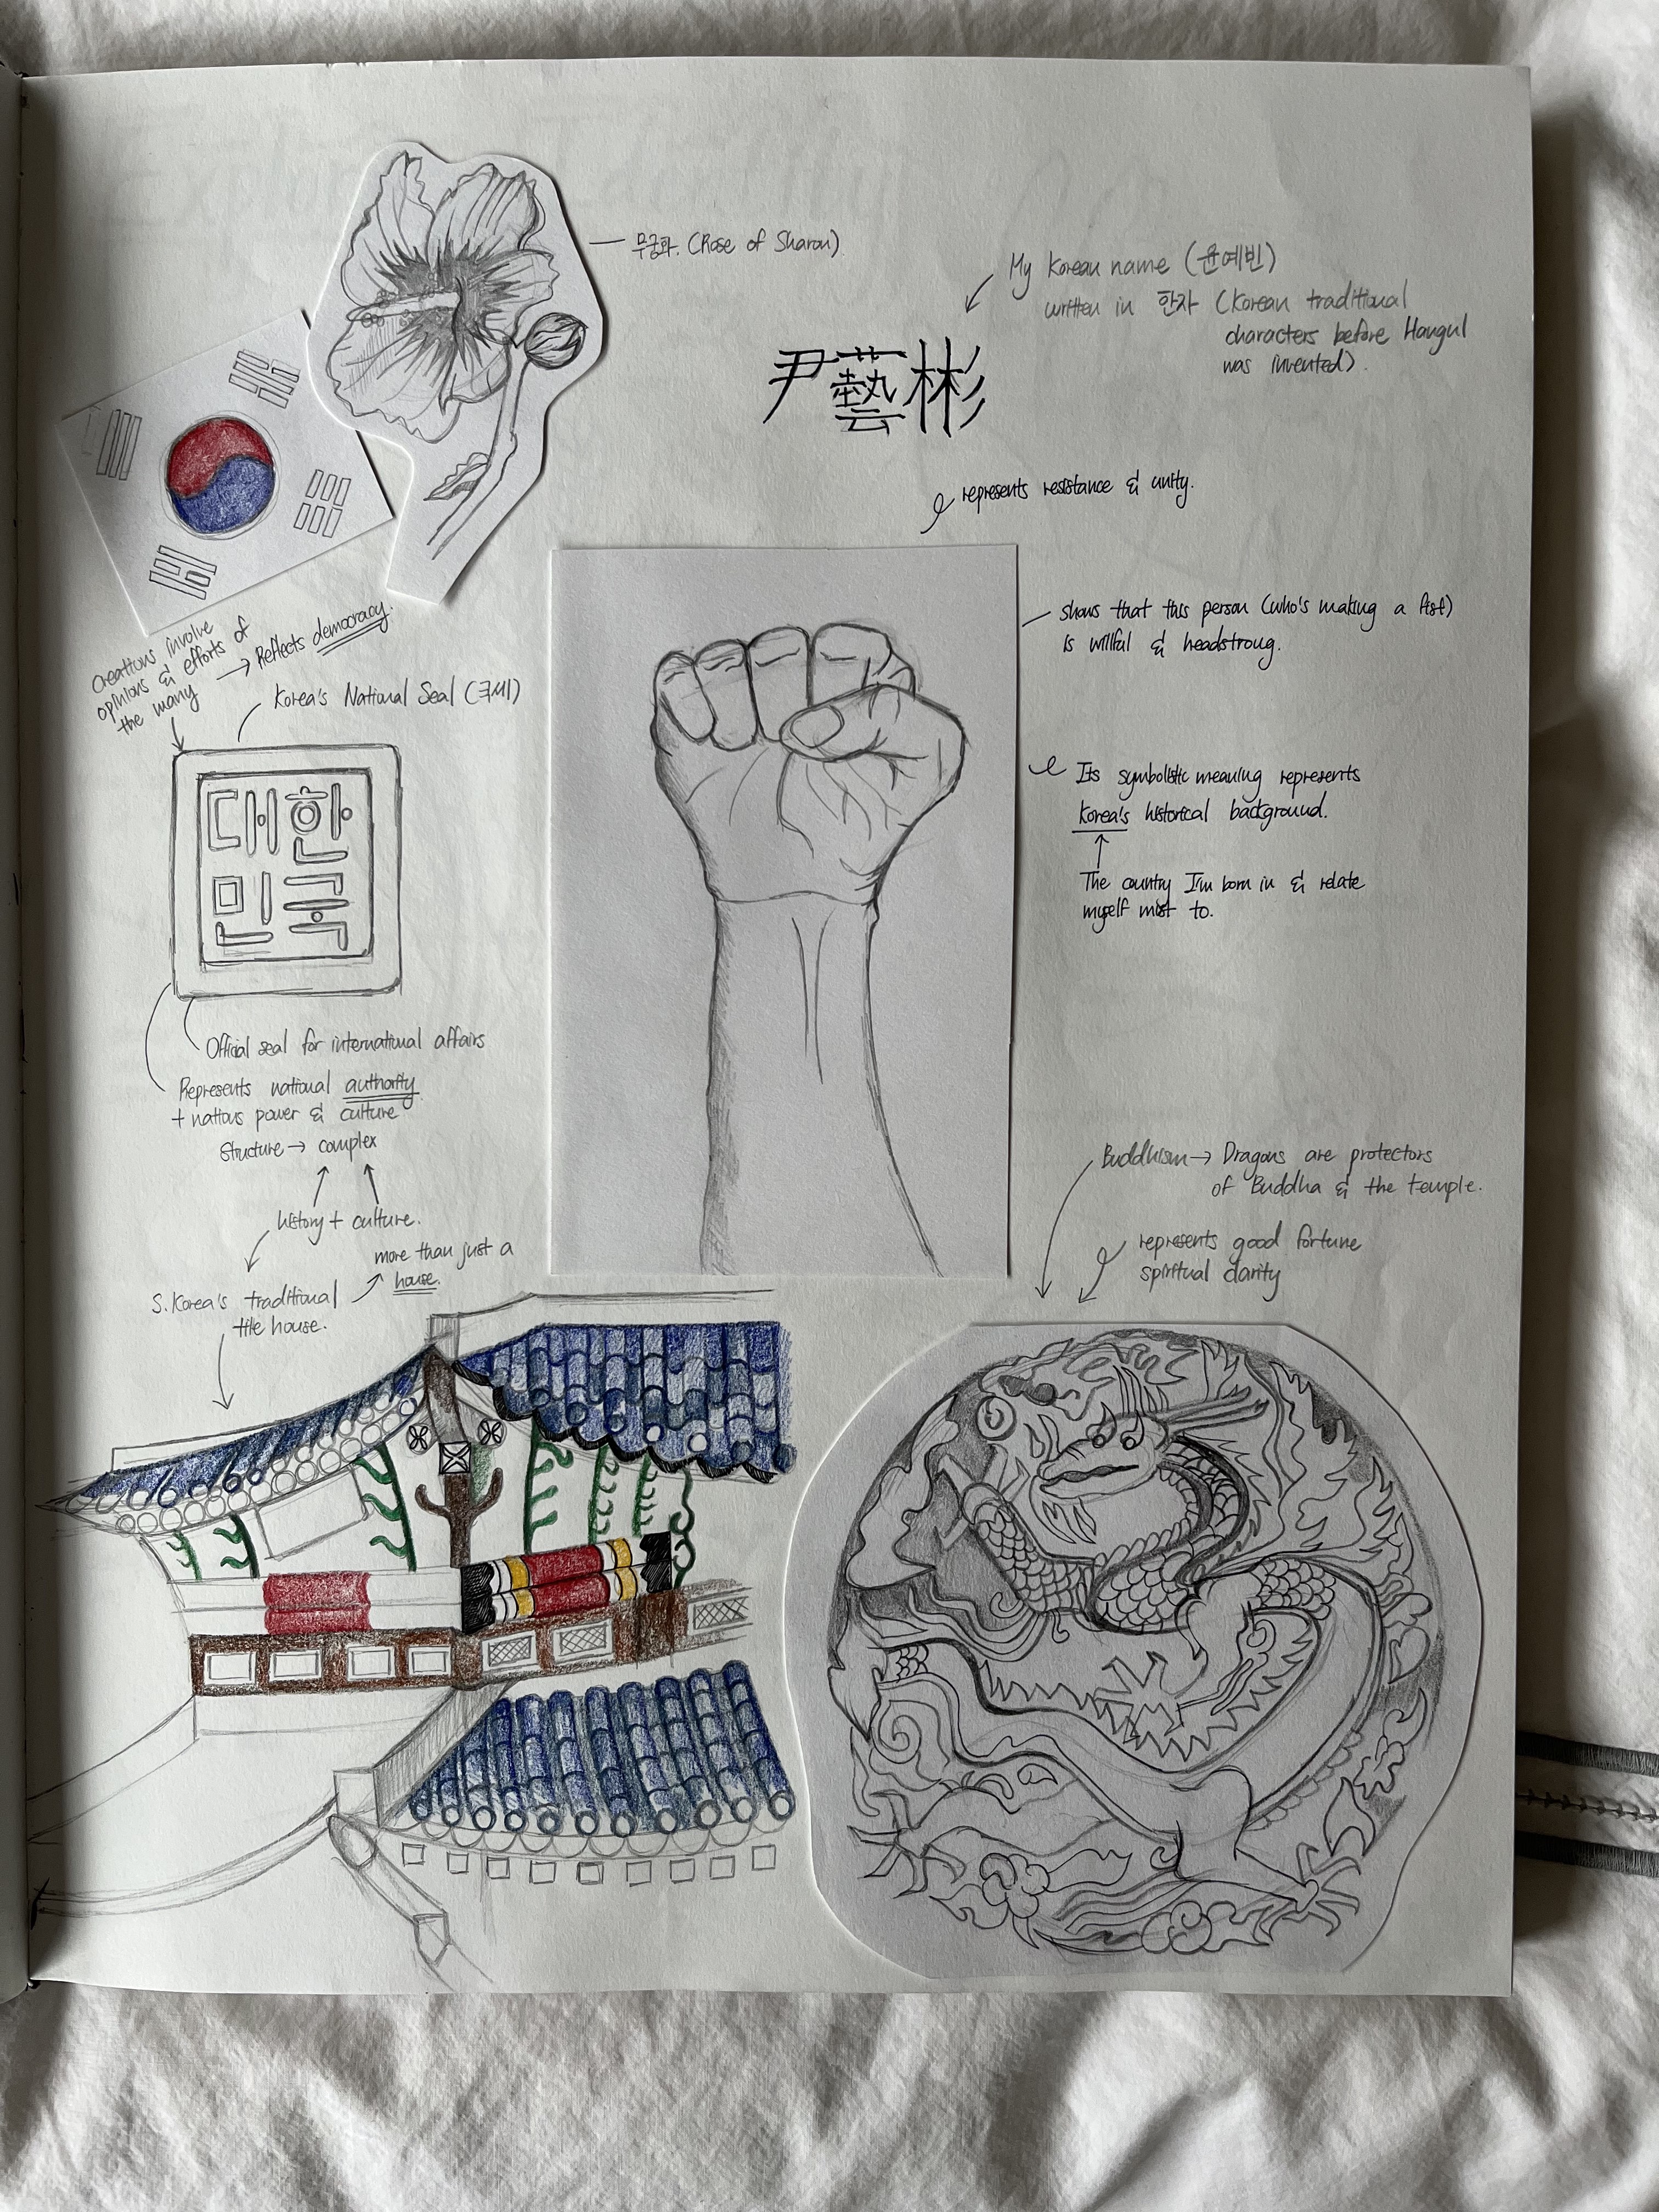 무궁화. (Rose of Sharon)
My Korean name (윤예빈)
written in 한자 (Korean traditional
characters before Hangul
was invented).
尹藝彬
represents resistance & unity.
shows that this person (who's making a fist)
is willful & headstrong.
Its symbolistic meaning represents
Korea's historical background.
The country I'm born in & relate
myself most to.
Creations involve
opinions & efforts of
the many
→ Reflects democracy.
Korea's National Seal (국새)
대한
민국
Official seal for international affairs
Represents national authority
+ nations power & culture
Structure → complex
history + culture.
more than just a
house.
S.Korea's traditional
tile house.
Buddhism → Dragons are protectors
of Buddha & the temple.
represents good fortune
spiritual clarity